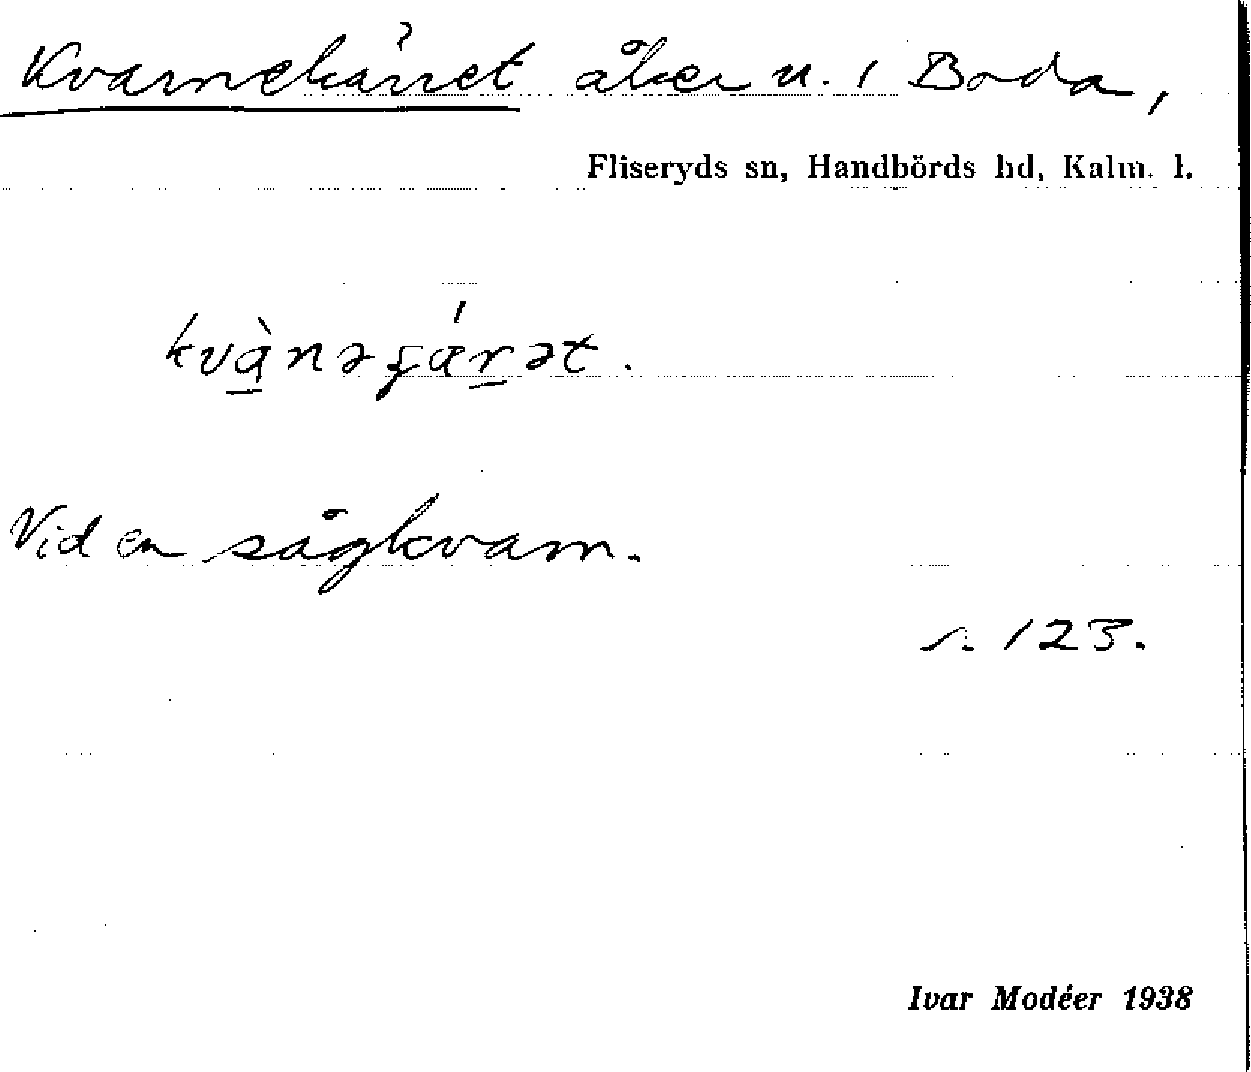 Kvarnekärret åker u. 1 Boda,
Fliseryds sn, Handbörds hd, Kalm. l.
kvà̠nəʂǽr̠ət.
Vid en sågkvarn.
s. 123.
Ivar Modéer 1938